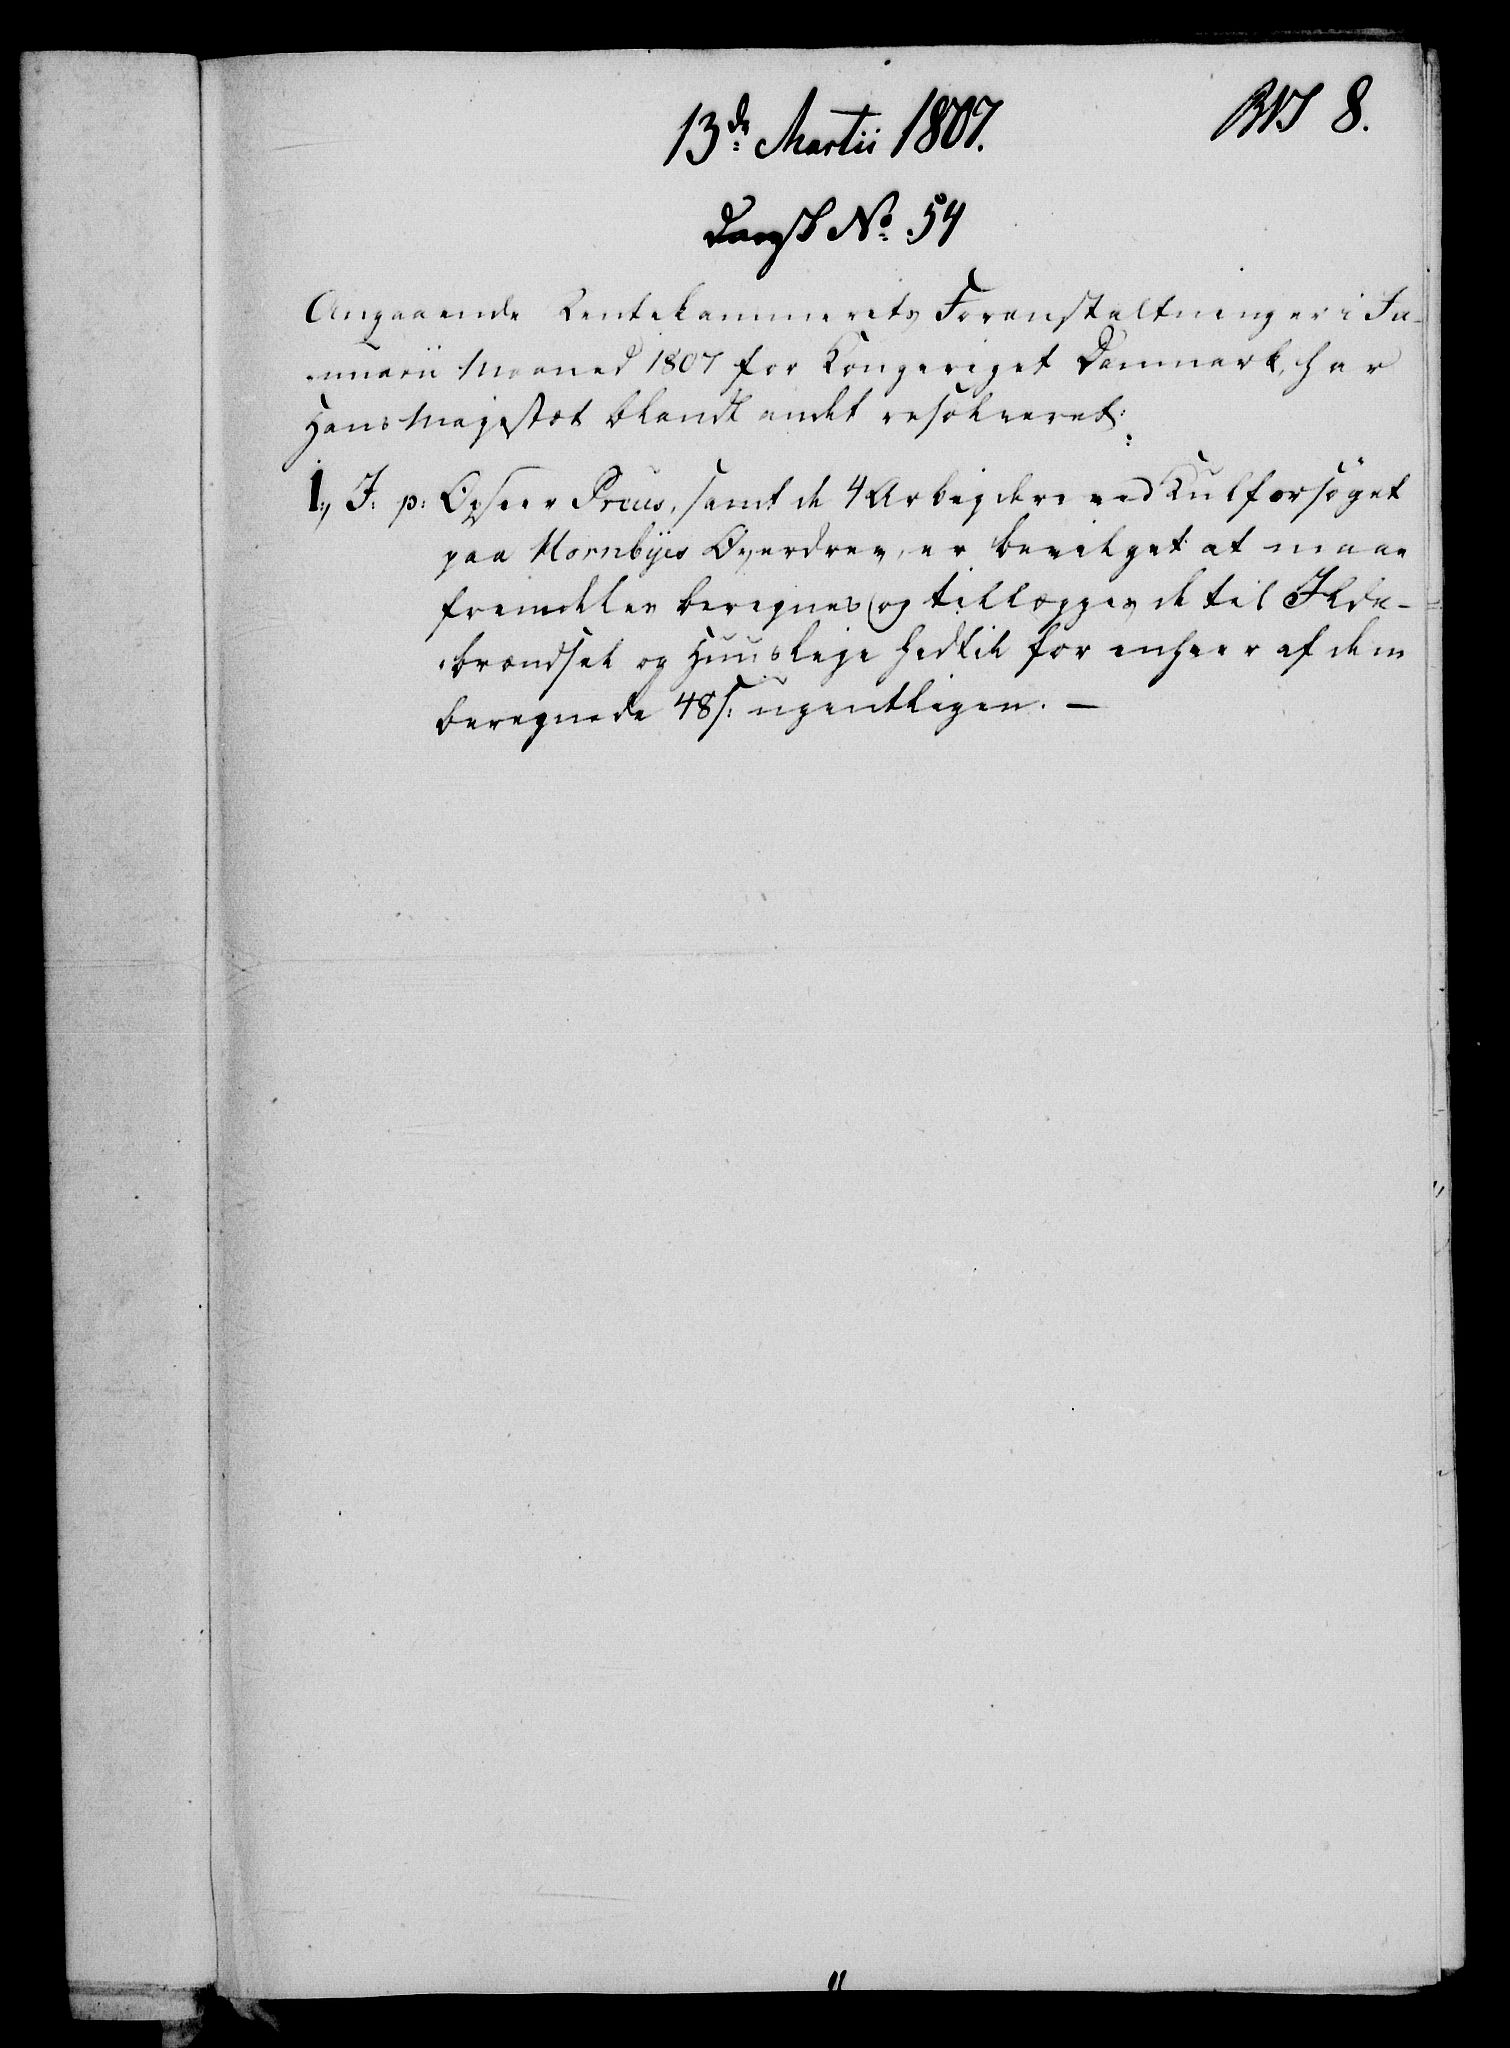 13de Martii 1807.
8.
Dansk No. 54
Angaaende Rentekammerets Foranstaltninger i Ja-
nuarii Maaned 1807 for Kongeriget Danmark, har
Hans Majestæt blandt andet resolveret:
1., I: p: Opseer Preus, samt de 4 Arbejdere ved Kulforsöget
paa Mornbyes Overdrev, er bevilget at maae
fremdeles beregnes og tillægges de til Ilde-
brændsel og Huusleje hedtil for enhver af dem
beregnede 48 s: ugentligen. —